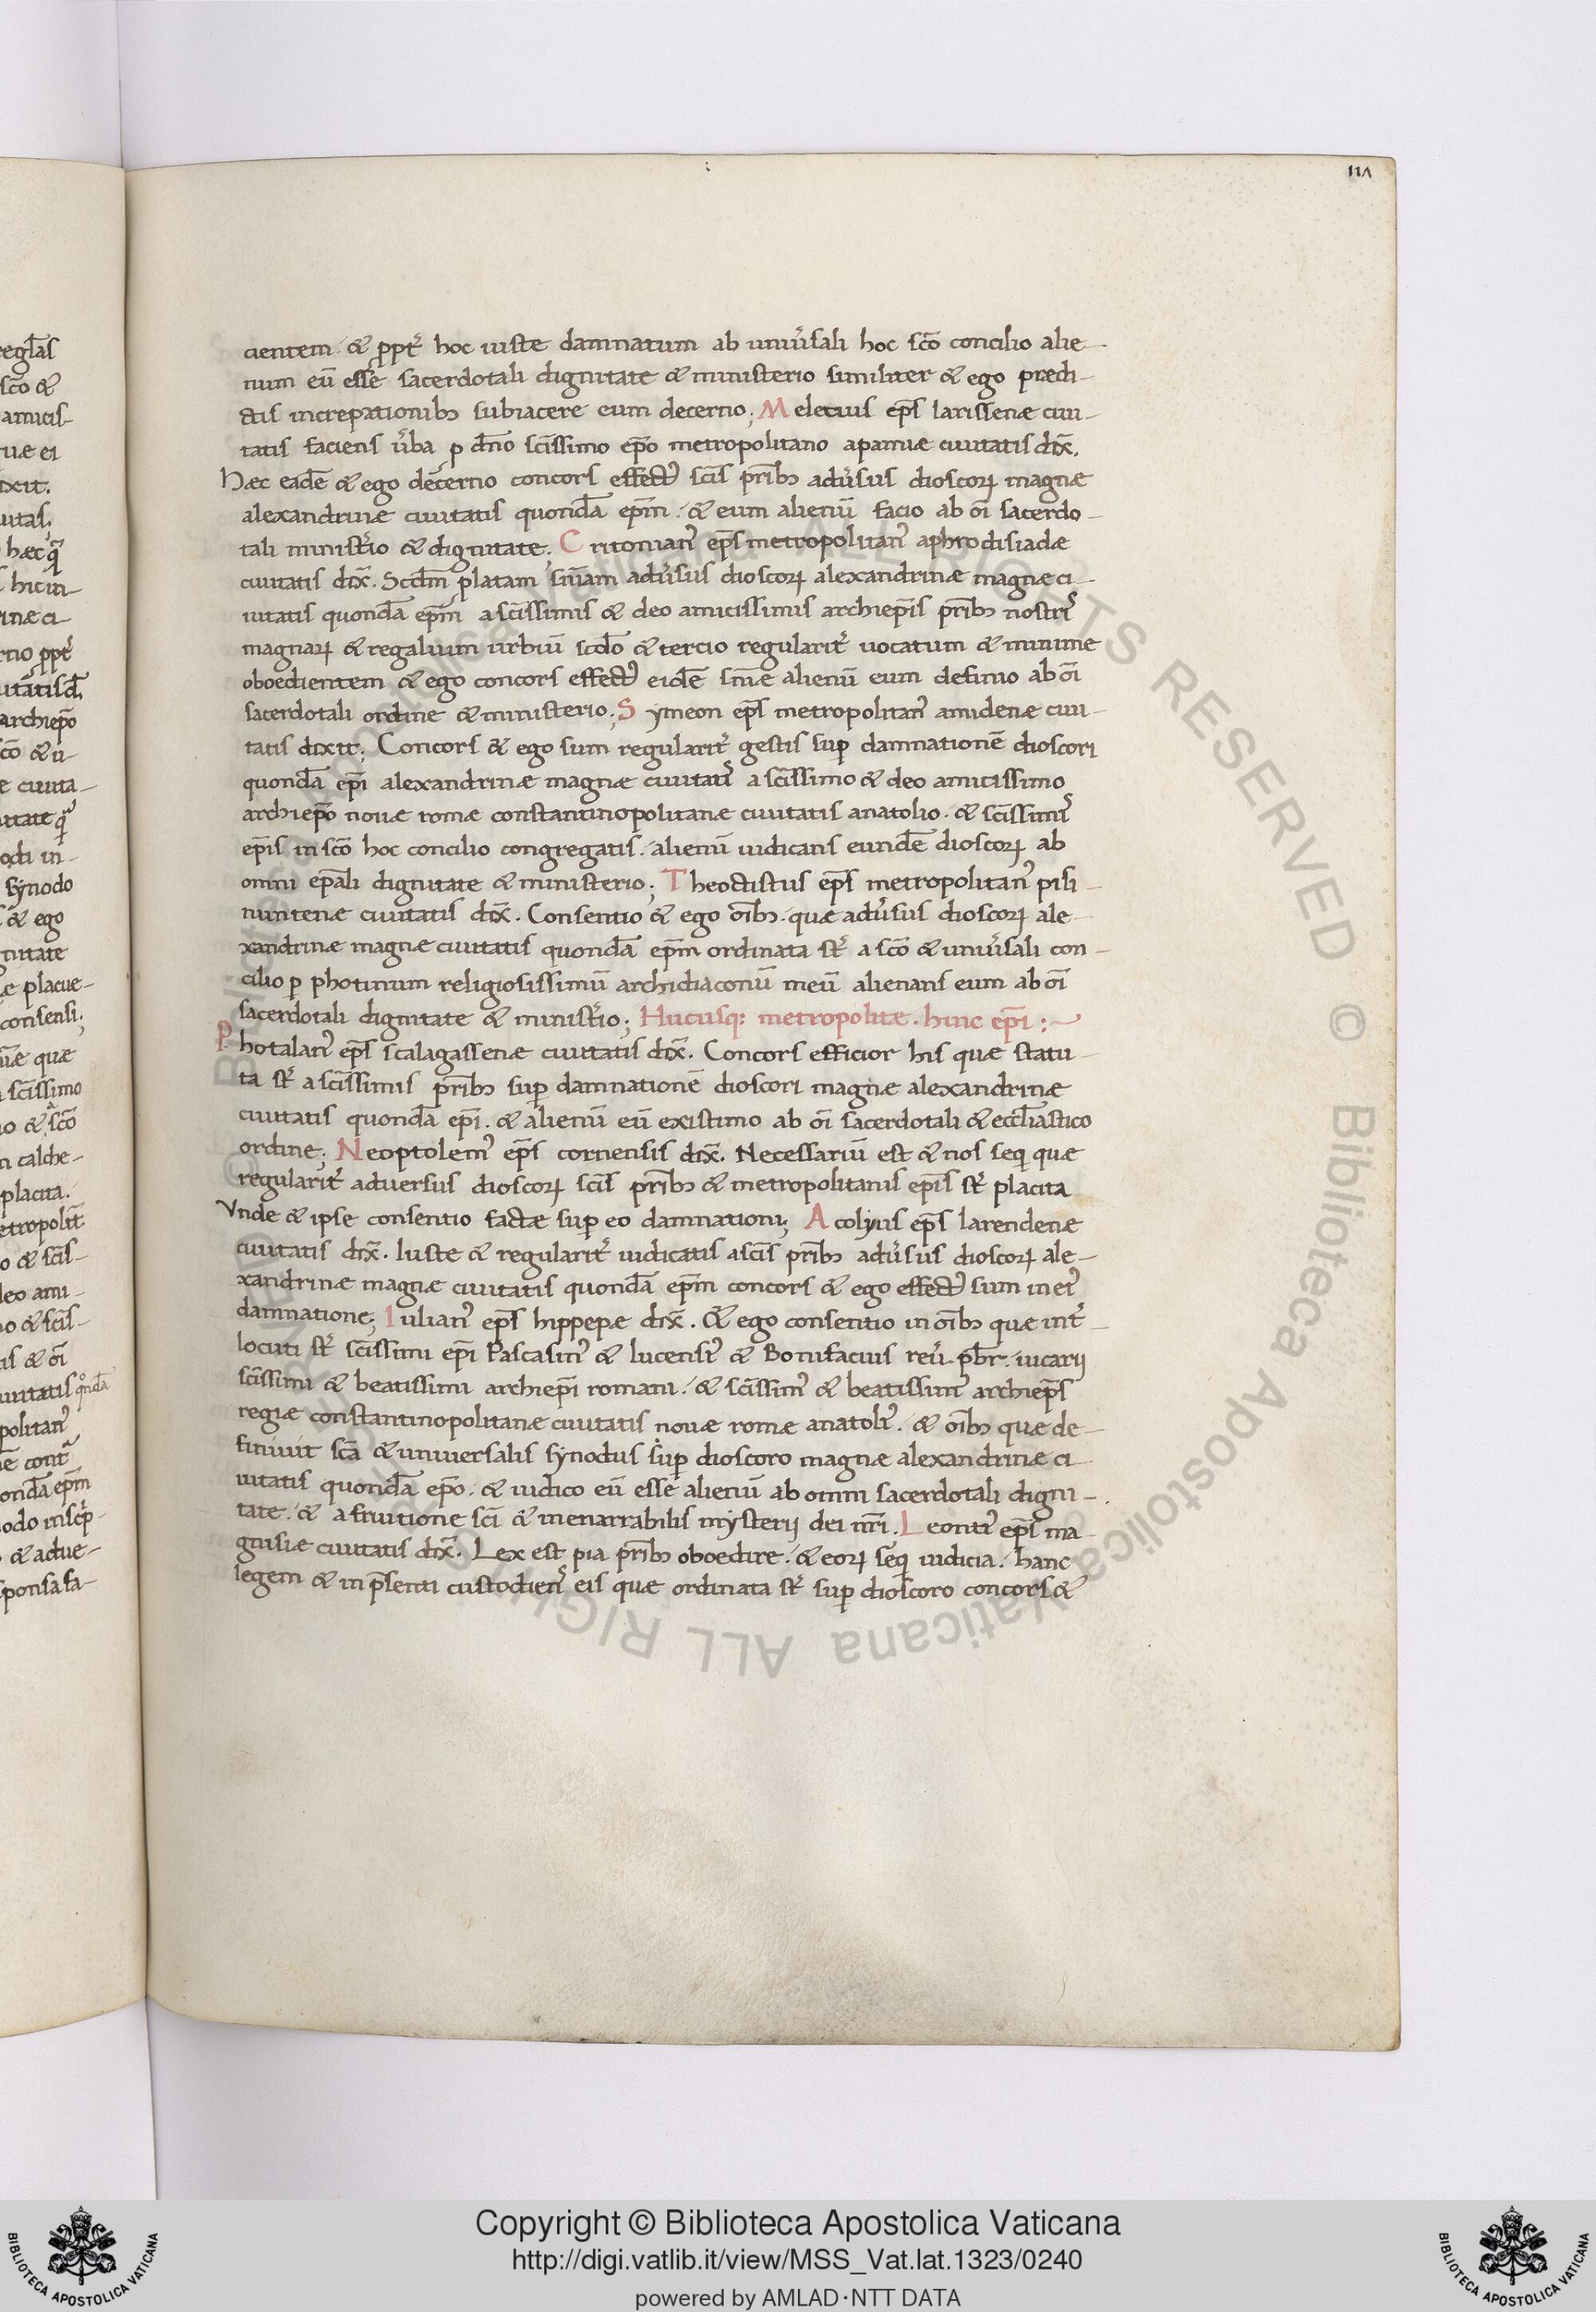 117
cientem· & ꝓpt̃ hoc iuste damnatum ab uniũsali hoc sc̃o concilio alie-
num eũ esse sacerdotali dignitate & ministerio similiter & ego predi-
ctis increpationibꝫ subiacere eum decerno; Meletius ep̃s larissenæ ciui-
tatis faciens ũba ꝑ dño sc̃issimo ep̃o metropolitano apamiæ ciuitatis dix̃.
Hæc eadẽ & ego decerno concors effectꝰ sc̃is pr̃ibꝫ adũsus dioscoꝝ magnæ
alexandrinæ ciuitatis quondã ep̃m· & eum alienũ facio ab oĩ sacerdo-
tali minist̃io & dignitate; Critonianꝰ ep̃s metropolitanꝰ aphrodisiadæ
ciuitatis dix̃. Scd̃m platam sñiam adũsus dioscoꝝ alexandrinæ magnæ ci-
uitatis quondã ep̃m a sc̃issimis & deo amicissimis archiep̃is pr̃ibꝫ nostrꝭ
magnaꝝ & regalium urbiũ scd̃o & tercio regularit̃ uocatum & minime
oboedientem & ego concors effectꝰ eidẽ sñiæ alienũ eum definio ab oĩ
sacerdotali ordine & ministerio; Symeon ep̃s metropolitanꝰ amidenæ ciui-
tatis dixit; Concors & ego sum regularit̃ gestis suꝑ damnationẽ dioscori
quondã ep̃i alexandrinæ magnæ ciuitatꝭ a sc̃issimo & deo amicissimo
archiep̃o nouæ romæ constantinopolitanæ ciuitatis anatolio· & sc̃issimꝭ
ep̃is in sc̃o hoc concilio congregatis· alienũ iudicans eundẽ dioscoꝝ ab
omni ep̃ali dignitate & ministerio; Theoctistus ep̃s metropolitanꝰ pisi-
nuntenæ ciuitatis dix̃. Consentio & ego oĩbꝫ· quæ adũsus dioscoꝝ ale-
xandrinæ magnæ ciuitatis quondã ep̃m ordinata st̃ a sc̃o & uniũsali con-
cilio ꝑ photinum religiosissimũ archidiaconũ meũ alienans eum ab oĩ
sacerdotali dignitate & minist̃io; Hucusq: metropolitæ. hinc ep̃i:
Photalanꝰ ep̃s scalagassenæ ciuitatis dix̃. Concors efficior his quæ statu-
ta st̃ a sc̃issimis pr̃ibꝫ suꝑ damnationẽ dioscori magnæ alexandrinæ
ciuitatis quondã ep̃i· & alienũ eũ existimo ab oĩ sacerdotali & eccl̃iastico
ordine; Neoptolemꝰ ep̃s cornensis dix̃. Necessariũ est & nos seqi quæ
regularit̃ adversus dioscoꝝ sc̃is pr̃ibꝫ & metropolitanis ep̃is st̃ placita
Vnde & ipse consentio factæ suꝑ eo damnationi; Acolyus ep̃s larendenæ
ciuitatis dix̃. Iuste & regularit̃ iudicatis a sc̃is pr̃ibꝫ adũsus dioscoꝝ ale-
xandrinæ magnæ ciuitatis quondã ep̃m concors & ego effectꝰ sum in eiꝰ
damnatione; Iulianꝰ ep̃s hippepæ dix̃. & ego consentio in oĩbꝫ quæ int̃-
locuti st̃ sc̃issimi ep̃i Pascasinꝰ & lucensiꝰ & Bonifacius reũ. pb̃r. uicarij
sc̃issimi & beatissimi archiep̃i romani· & sc̃issimꝰ & beatissimꝰ archiep̃s
regiæ constantinopolitanæ ciuitatis nouæ romæ anatoliꝰ· & oĩbꝫ quæ de-
finiuit sc̃a & universalis synodus suꝑ dioscoro magnæ alexandrinæ ci-
uitatis quondã ep̃o· & iudico eũ esse alienũ ab omni sacerdotali digni-
tate· & a fruitione sc̃i & inenarrabilis mysterij dei nr̃i. Leontiꝰ ep̃s ma-
gnisiæ ciuitatis dix̃. Lex est pia pr̃ibꝫ oboedire· & eoꝝ seqi iudicia· hanc
legem & in p̃senti custodienꝭ eis quæ ordinata st̃ suꝑ dioscoro concors &
Copyright © Biblioteca Apostolica Vaticana
http://digi.vatlib.it/view/MSS_Vat.lat.1323/0240
powered by AMLAD·NTT DATA